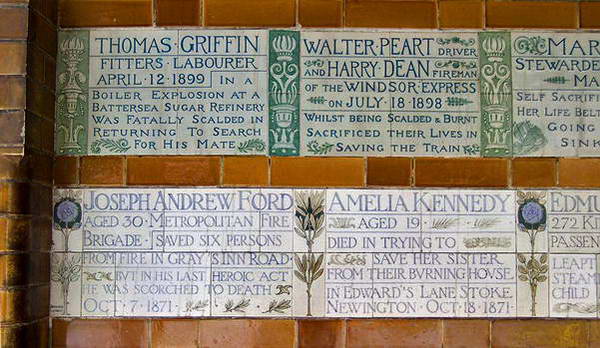 THOMAS GRIFFIN
FITTERS LABOURER
APRIL · 12 · 1899 | IN A
BOILER EXPLOSION AT A
BATTERSEA SUGAR REFINERY
WAS FATALLY SCALDED IN
RETURNING TO SEARCH
FOR HIS MATE
WALTER PEART DRIVER
AND HARRY DEAN FIREMAN
OF THE WINDSOR EXPRESS
ON JULY · 18 · 1898
WHILST BEING SCALDED & BURNT
SACRIFICED THEIR LIVES IN
SAVING THE TRAIN
MAR
STEWARDE
MA
SELF SACRIFI
HER LIFE BELT
GOING
SINK
JOSEPH ANDREW FORD
AGED 30 · METROPOLITAN FIRE
BRIGADE · | SAVED SIX PERSONS
FROM FIRE IN GRAY'S INN ROAD
BVT IN HIS LAST HEROIC ACT
HE WAS SCORCHED TO DEATH
OCT · 7 · 1871 ·
AMELIA KENNEDY
AGED 19 ·
DIED IN TRYING TO
SAVE HER SISTER
FROM THEIR BVRNING HOVSE
IN EDWARD'S LANE STOKE
NEWINGTON · OCT · 18 · 1871 ·
EDMU
272 KIN
PASSEN
LEAPT
STEAM
CHILD